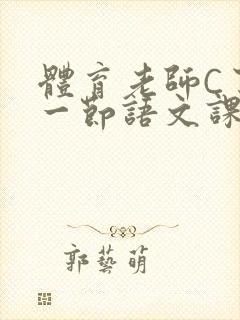 體育老師C
一節語文課
郭藝萌